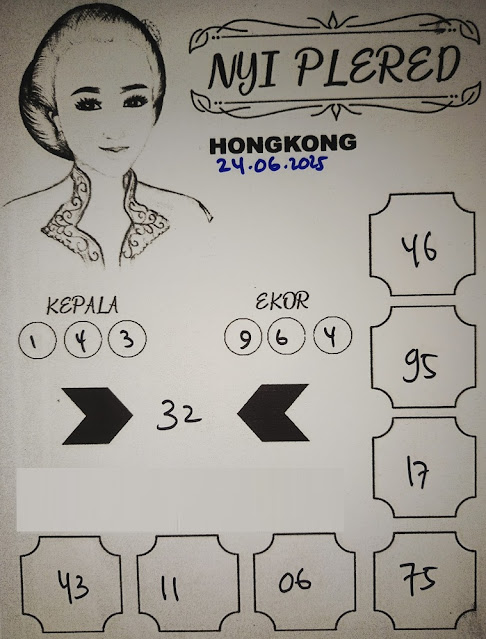 NYI PLERED
HONGKONG
24.06.2025
46
KEPALA EKOR
1 4 3 9 6 4
95
32
17
43 11 06 75